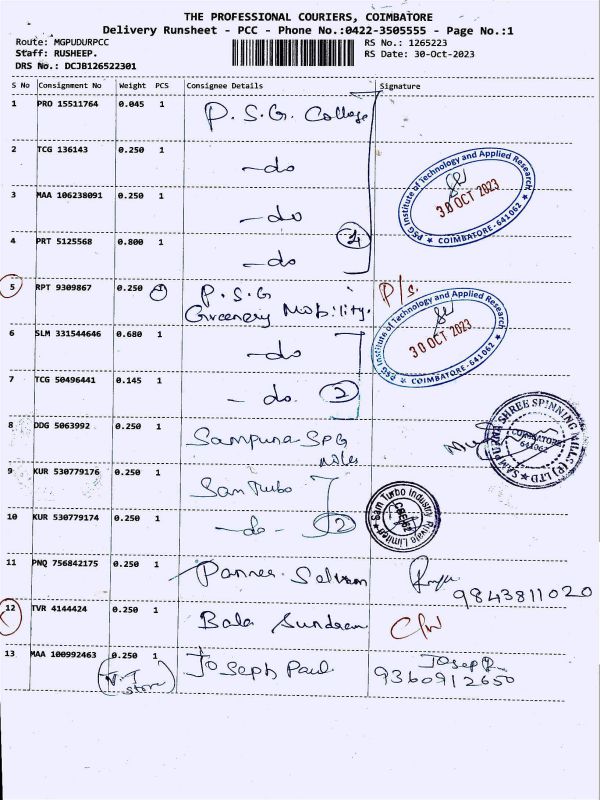 THE PROFESSIONAL COURIERS, COIMBATORE
Delivery Runsheet - PCC - Phone No.:0422-3505555 - Page No.:1
Route: MGPUDURPCC RS No.: 1265223
Staff: RUSHEEP. RS Date: 30-Oct-2023
DRS No.: DCJB126522301
S No Consignment No Weight PCS Consignee Details Signature
1 PRO 15511764 0.045 1 P.S.G. College
2 TCG 136143 0.250 1 -do
PSG Institute of Technology and Applied Research
30 OCT 2023
★ COIMBATORE-641062 ★
3 MAA 106238091 0.250 1 -do
4
4 PRT 5125568 0.800 1 -do
5 RPT 9309867 0.250 1 P.S.G P/s.
Greenery Mobility.
PSG Institute of Technology and Applied Research
30 OCT 2023
★ COIMBATORE-641062 ★
6 SLM 331544646 0.680 1 -do
7 TCG 50496441 0.145 1 - do. 2
8 DDG 5063992 0.250 1 Sampurna SPG
SAMPURNA SHREE SPINNING MILLS (P) LTD
COIMBATORE
641062
9 KUR 530779176 0.250 1 Sam Turbo
Sam Turbo Industry Private Limited
10 KUR 530779174 0.250 1 -do- 2
11 PNQ 756842175 0.250 1 Panner Selvam
9843811020
12 TVR 4144424 0.250 1 Bala Sundram
13 MAA 100992463 0.250 1 Joseph Paul Joseph
9360912650
store